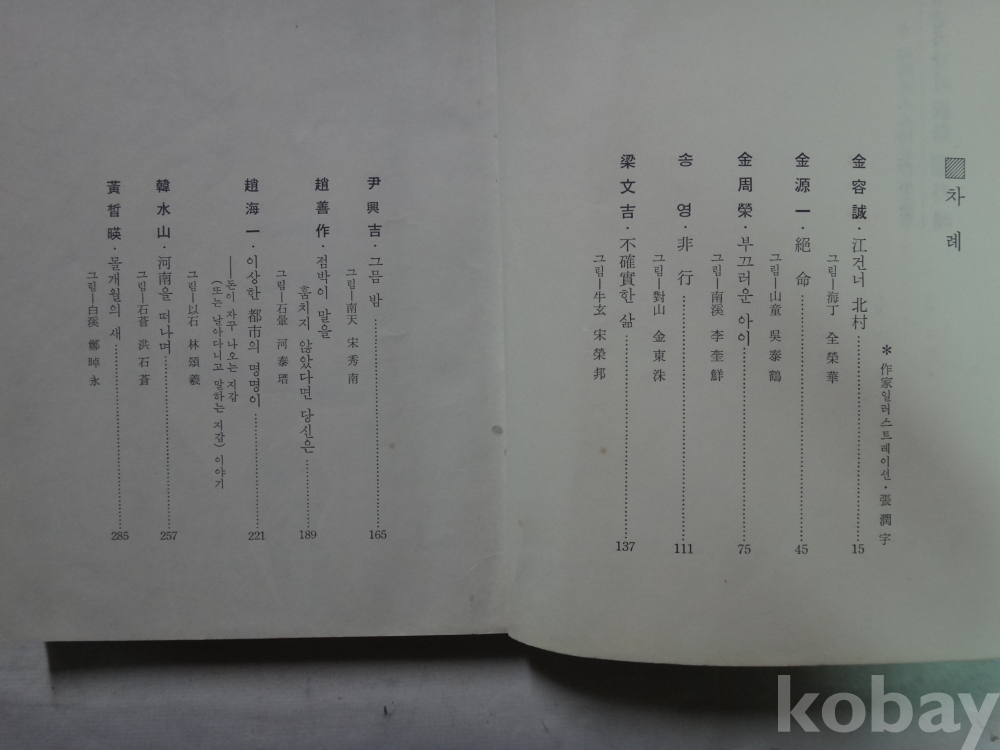 차례
*作家일러스트레이션·張潤宇
金容誠·江건너 北村 15
그림—海丁 全榮華
金源一·絕命 45
그림—山童 吳泰鶴
金周榮·부끄러운 아이 75
그림—南溪 李奎鮮
송영·非行 111
그림—對山 金東洙
梁文吉·不確實한 삶 137
그림—牛玄 宋榮邦
尹興吉·그믐 밤 165
그림—南天 宋秀南
趙善作·점박이 말을
훔치지 않았다면 당신은 189
그림—石暈 河泰瑨
趙海一·이상한 都市의 명명이 221
——돈이 자꾸 나오는 지갑
(또는 날아다니고 말하는 지갑) 이야기
그림—以石 林頌羲
韓水山·河南을 떠나며 257
그림—石蒼 洪石蒼
黃晳暎·몰개월의 새 285
그림—白溪 鄭晫永
kobay